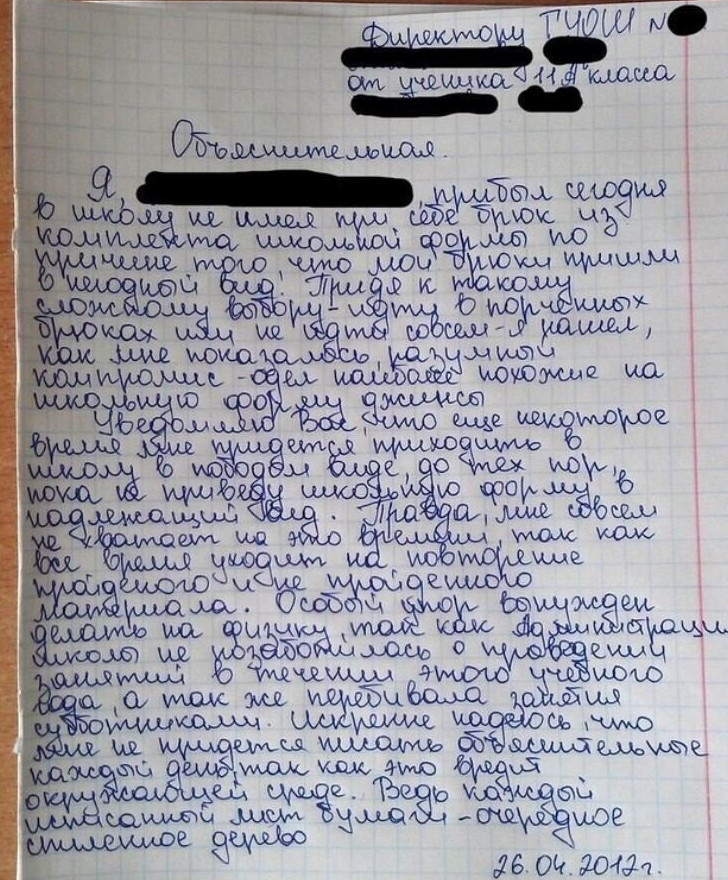 Директору ГУОШ №
от ученика 11 А класса
Объяснительная.
Я, , прибыл сегодня
в школу не имея при себе брюк из
комплекта школьной формы по
причине того что мои брюки пришли
в негодный вид! Придя к такому
сложному выбору - идти в порченных
брюках или не идти совсем - я нашел,
как мне показалось, разумный
компромис - одел наиболее похожие на
школьную форму джинсы
Уведомляю Вас, что еще некоторое
время мне придется приходить в
школу в подобном виде, до тех пор,
пока не приведу школьную форму в
надлежащий вид. Правда, мне совсем
не хватает на это времени, так как
все время уходит на повторение
пройденого и не пройденного
материала. Особый упор вынужден
делать на физику, так как Администрации
школы не позаботилась о проведении
занятий в течении этого учебного
года, а так же перебивала занятия
субботниками. Искренне надеюсь, что
мне не придется писать объяснительные
каждый день, так как это вредит
окружающей среде. Ведь каждый
исписанный лист бумаги - очередное
спиленное дерево
26.04.2012г.